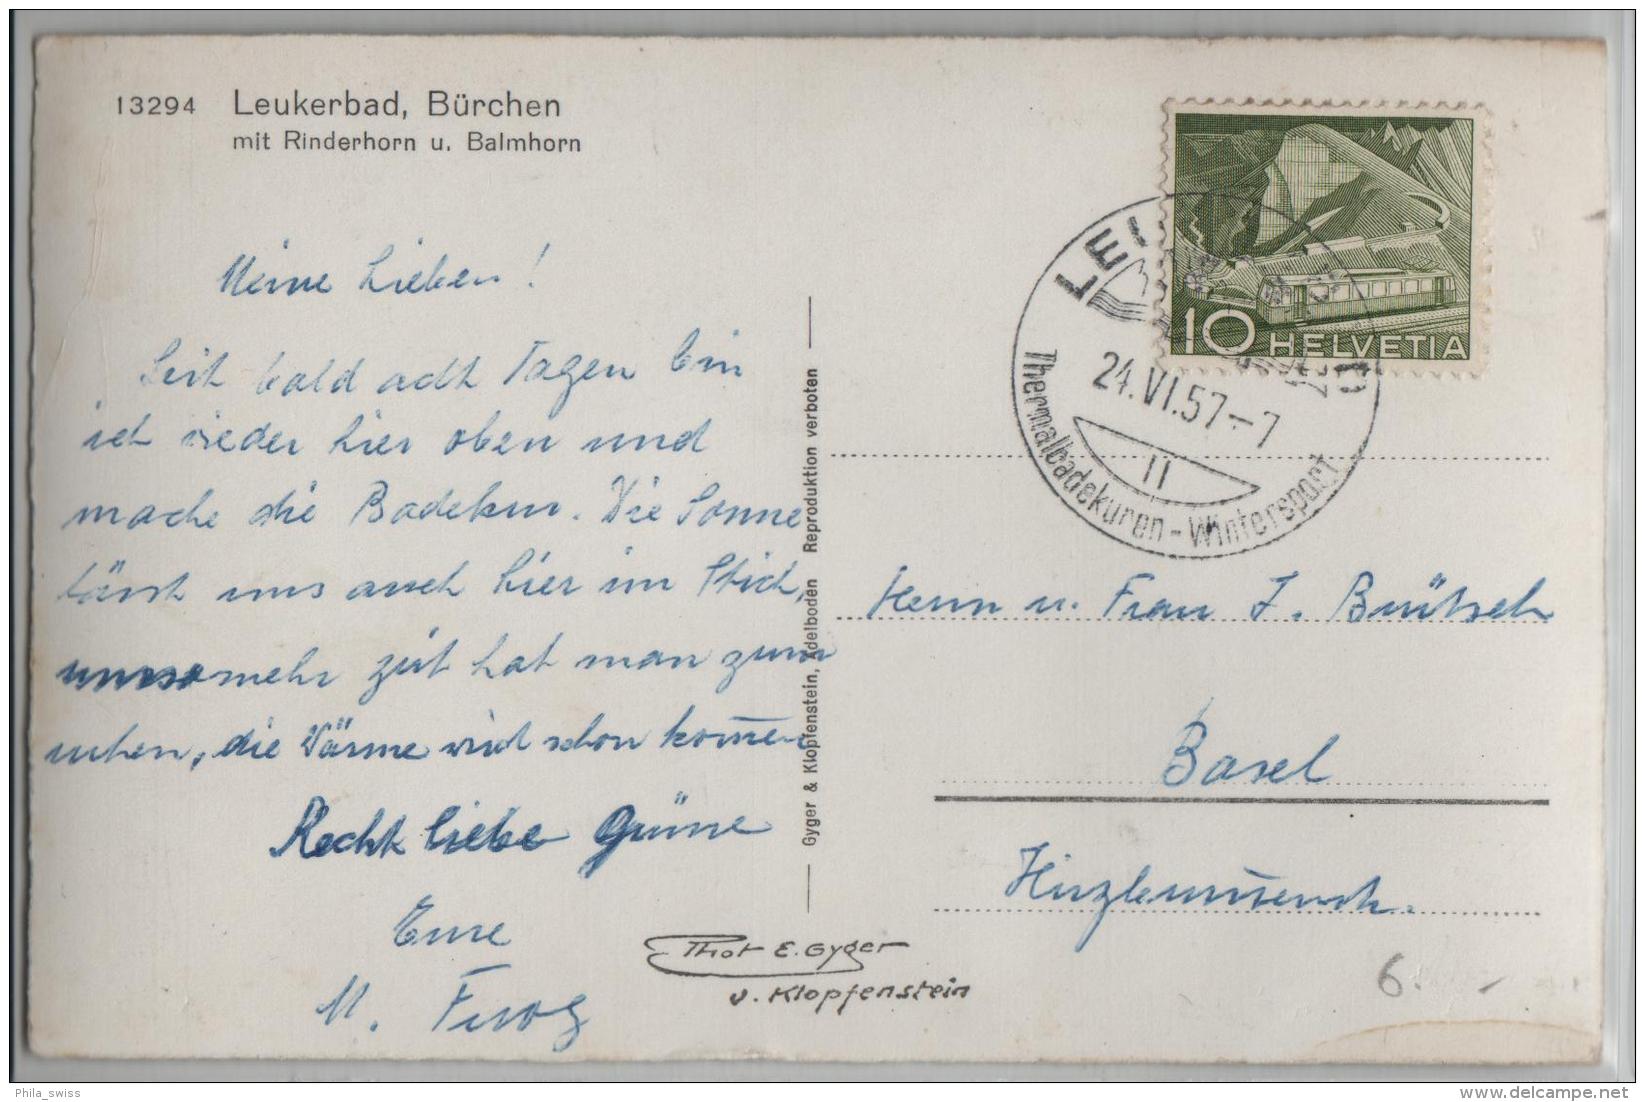 13294 Leukerbad, Bürchen
mit Rinderhorn u. Balmhorn
Meine Lieben!
Seit bald acht Tagen bin
ich wieder hier oben und
mache die Badekur. Die Sonne
lässt uns auch hier im Stich,
umsomehr Zeit hat man zum
ruhen, die Wärme wird schon kom̅en
Recht liebe Grüsse
Eure
M.
Gyger & Klopfenstein, Adelboden Reproduktion verboten
Phot E. Gyger
u. Klopfenstein
10 HELVETIA
LEU
24.VI.57-7
II
Thermalbadekuren - Wintersport
Herrn u. Frau J. Brütsch
Basel
6.
Phila_swiss
delcampe.net